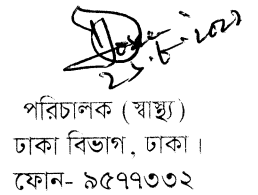 পরিচালক (স্বাস্থ্য)
ঢাকা বিভাগ, ঢাকা।
ফোন- ৯৫৭৭৩৩২